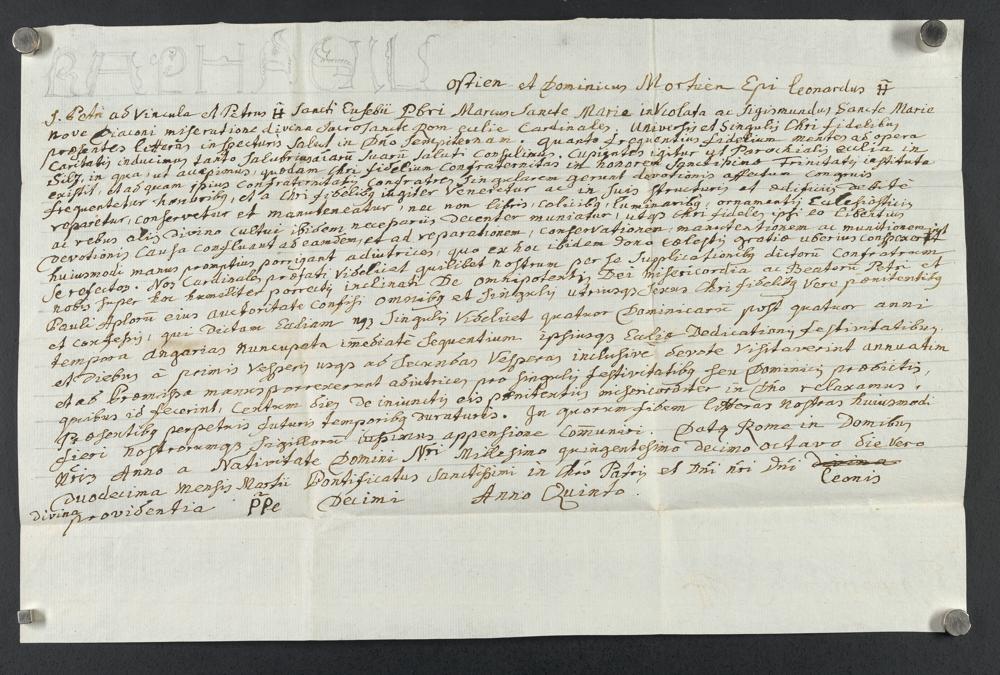 RAPHAEL
Ostien et Dominicus Mortien Epi leonardus tt̄
S. Petri ad Vincula et Petrus tt̄ Sancti Eusebii Pbri Marcus Sancte Marie in Violata ac Sigismundus Sancte Marie
nove Diaconi miseratione divina Sacrosancte Rom ecclie Cardinales. Universis et Singulis Chri fidelibus
presentes literas inspecturis Salut in Dño Sempiternam. quanto frequentius fidelium mentes ab opera
Caritatis inducimus tanto Salubrius aiaru Suaru Saluti Consulimus. Cupientes igitur ut Parochialis ecclia in
in qua, ut accepimus, quedam Chri fidelium Confraternitas in honorem Sanctissime Trinitatis instituta
existit, et ad quam ipsius Confraternitatis Confratres Singularem gerunt devotionis affectum congruis
frequentetur honoribus, et a Chri fidelibus iugiter Veneretur ac in Suis Structuris et edificiis debite
reparetur, conservetur et manuteneatur, nec non libris, calicibus, luminaribus, ornamentis Ecclesiasticis
ac rebus aliis Divino cultui ibidem necessariis decenter muniatur, utque Chri fideles ipsi eo libentius
devotionis Causa confluant ad eandem, et ad reparationem, conservationem, manutentionem ac munitionem
huiusmodi manus promptius porrigant adiutrices, quo ex hoc ibidem dono celestis gratie uberius conspexerit
Se refectos. Nos Cardinales prefati Videlicet quilibet nostrum per Se Supplicationibus dictorum Confratrum
nobis Super hoc humiliter porrectis inclinati De omnipotentis Dei misericordia ac Beatorum Petri et
Pauli Aplorum eius auctoritate Confisi omnibus et Singulis utriusque Sexus Chri fidelibus Vere penitentibus
et confessis, qui Dictam Eccliam Singulis Videlicet quatuor Dominicarum post quatuor anni
tempora angarias nuncupata imediate Sequentium ipsiusque Ecclie Dedicationis festivitatibus
et Diebus a primis Vesperis usque ad Secundas Vesperas inclusive devote Visitaverint annuatim
et ad premissa manus porrexerint adiutrices pro Singulis festivitatibus Seu Dominicis predictis,
quibus id fecerint, Centum dies de iniunctis eis penitentiis misericorditer in Dño relaxamus.
Presentibus perpetuis futuris temporibus duraturis. In quorum fidem litteras nostras huiusmodi
fieri nostrorumque Sigillorum iussimus appensione Comuniri. Datum Rome in Domibus
Nris Anno a Nativitate Domini Nri Millesimo quingentesimo decimo octavo die vero
Duodecima mensis Martii Pontificatus Sanctissimi in Chro Patris et Dni nri Dni divina Leonis
divina providentia PPe Decimi Anno Quinto.